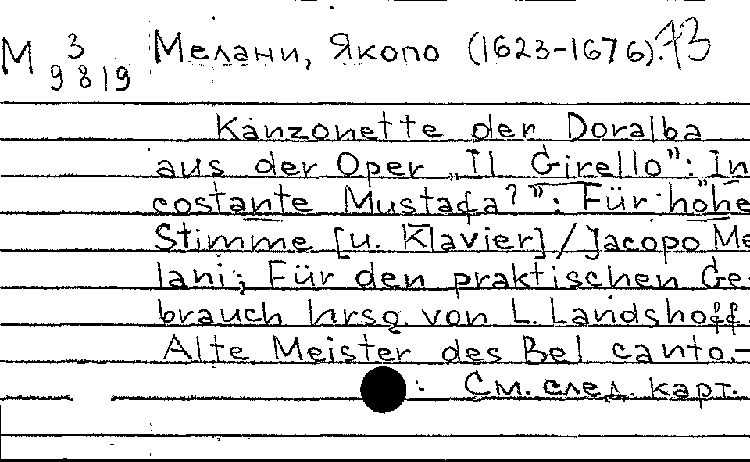 М 3 Мелани, Якопо (1623-1676). 73
9819
Kanzonette der Doralba
aus der Oper „Il Girello": In
costante Mustafa?": Für hohe
Stimme [u. Klavier] / Jacopo Me
lani; Für den praktischen Ge-
brauch hrsg. von L. Landshoff.
Alte Meister des Bel canto.-
: См. след. карт.